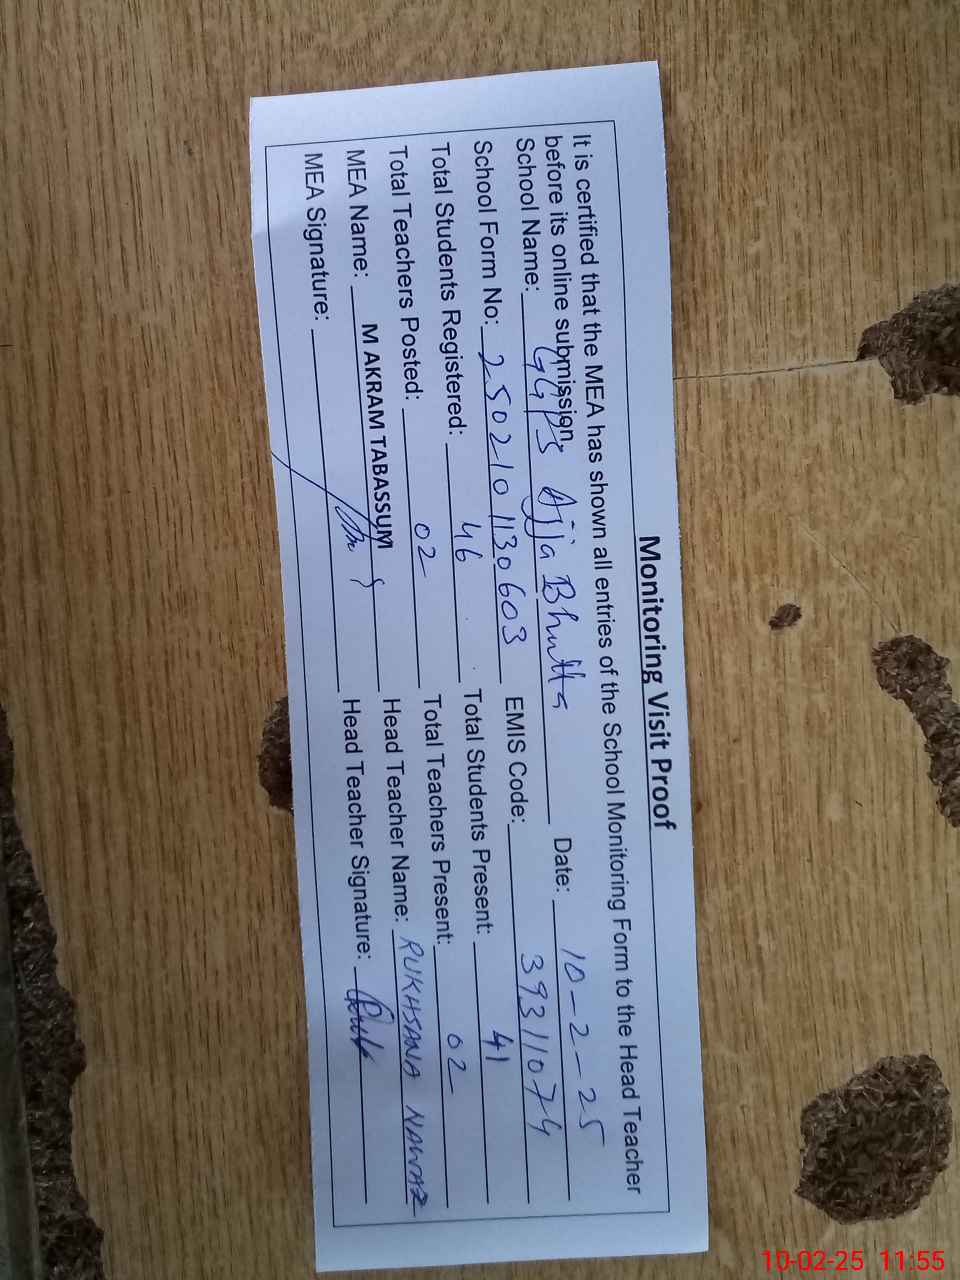 Monitoring Visit Proof
It is certified that the MEA has shown all entries of the School Monitoring Form to the Head Teacher
before its online submission.
School Name: GGPS Ajja Bhutta Date: 10-2-25
School Form No: 250210130603 EMIS Code: 39311074
Total Students Registered: 46 Total Students Present: 41
Total Teachers Posted: 02 Total Teachers Present: 02
MEA Name: M AKRAM TABASSUM Head Teacher Name: RUKHSANA NAWAZ
MEA Signature: Head Teacher Signature:
10-02-25 11:55